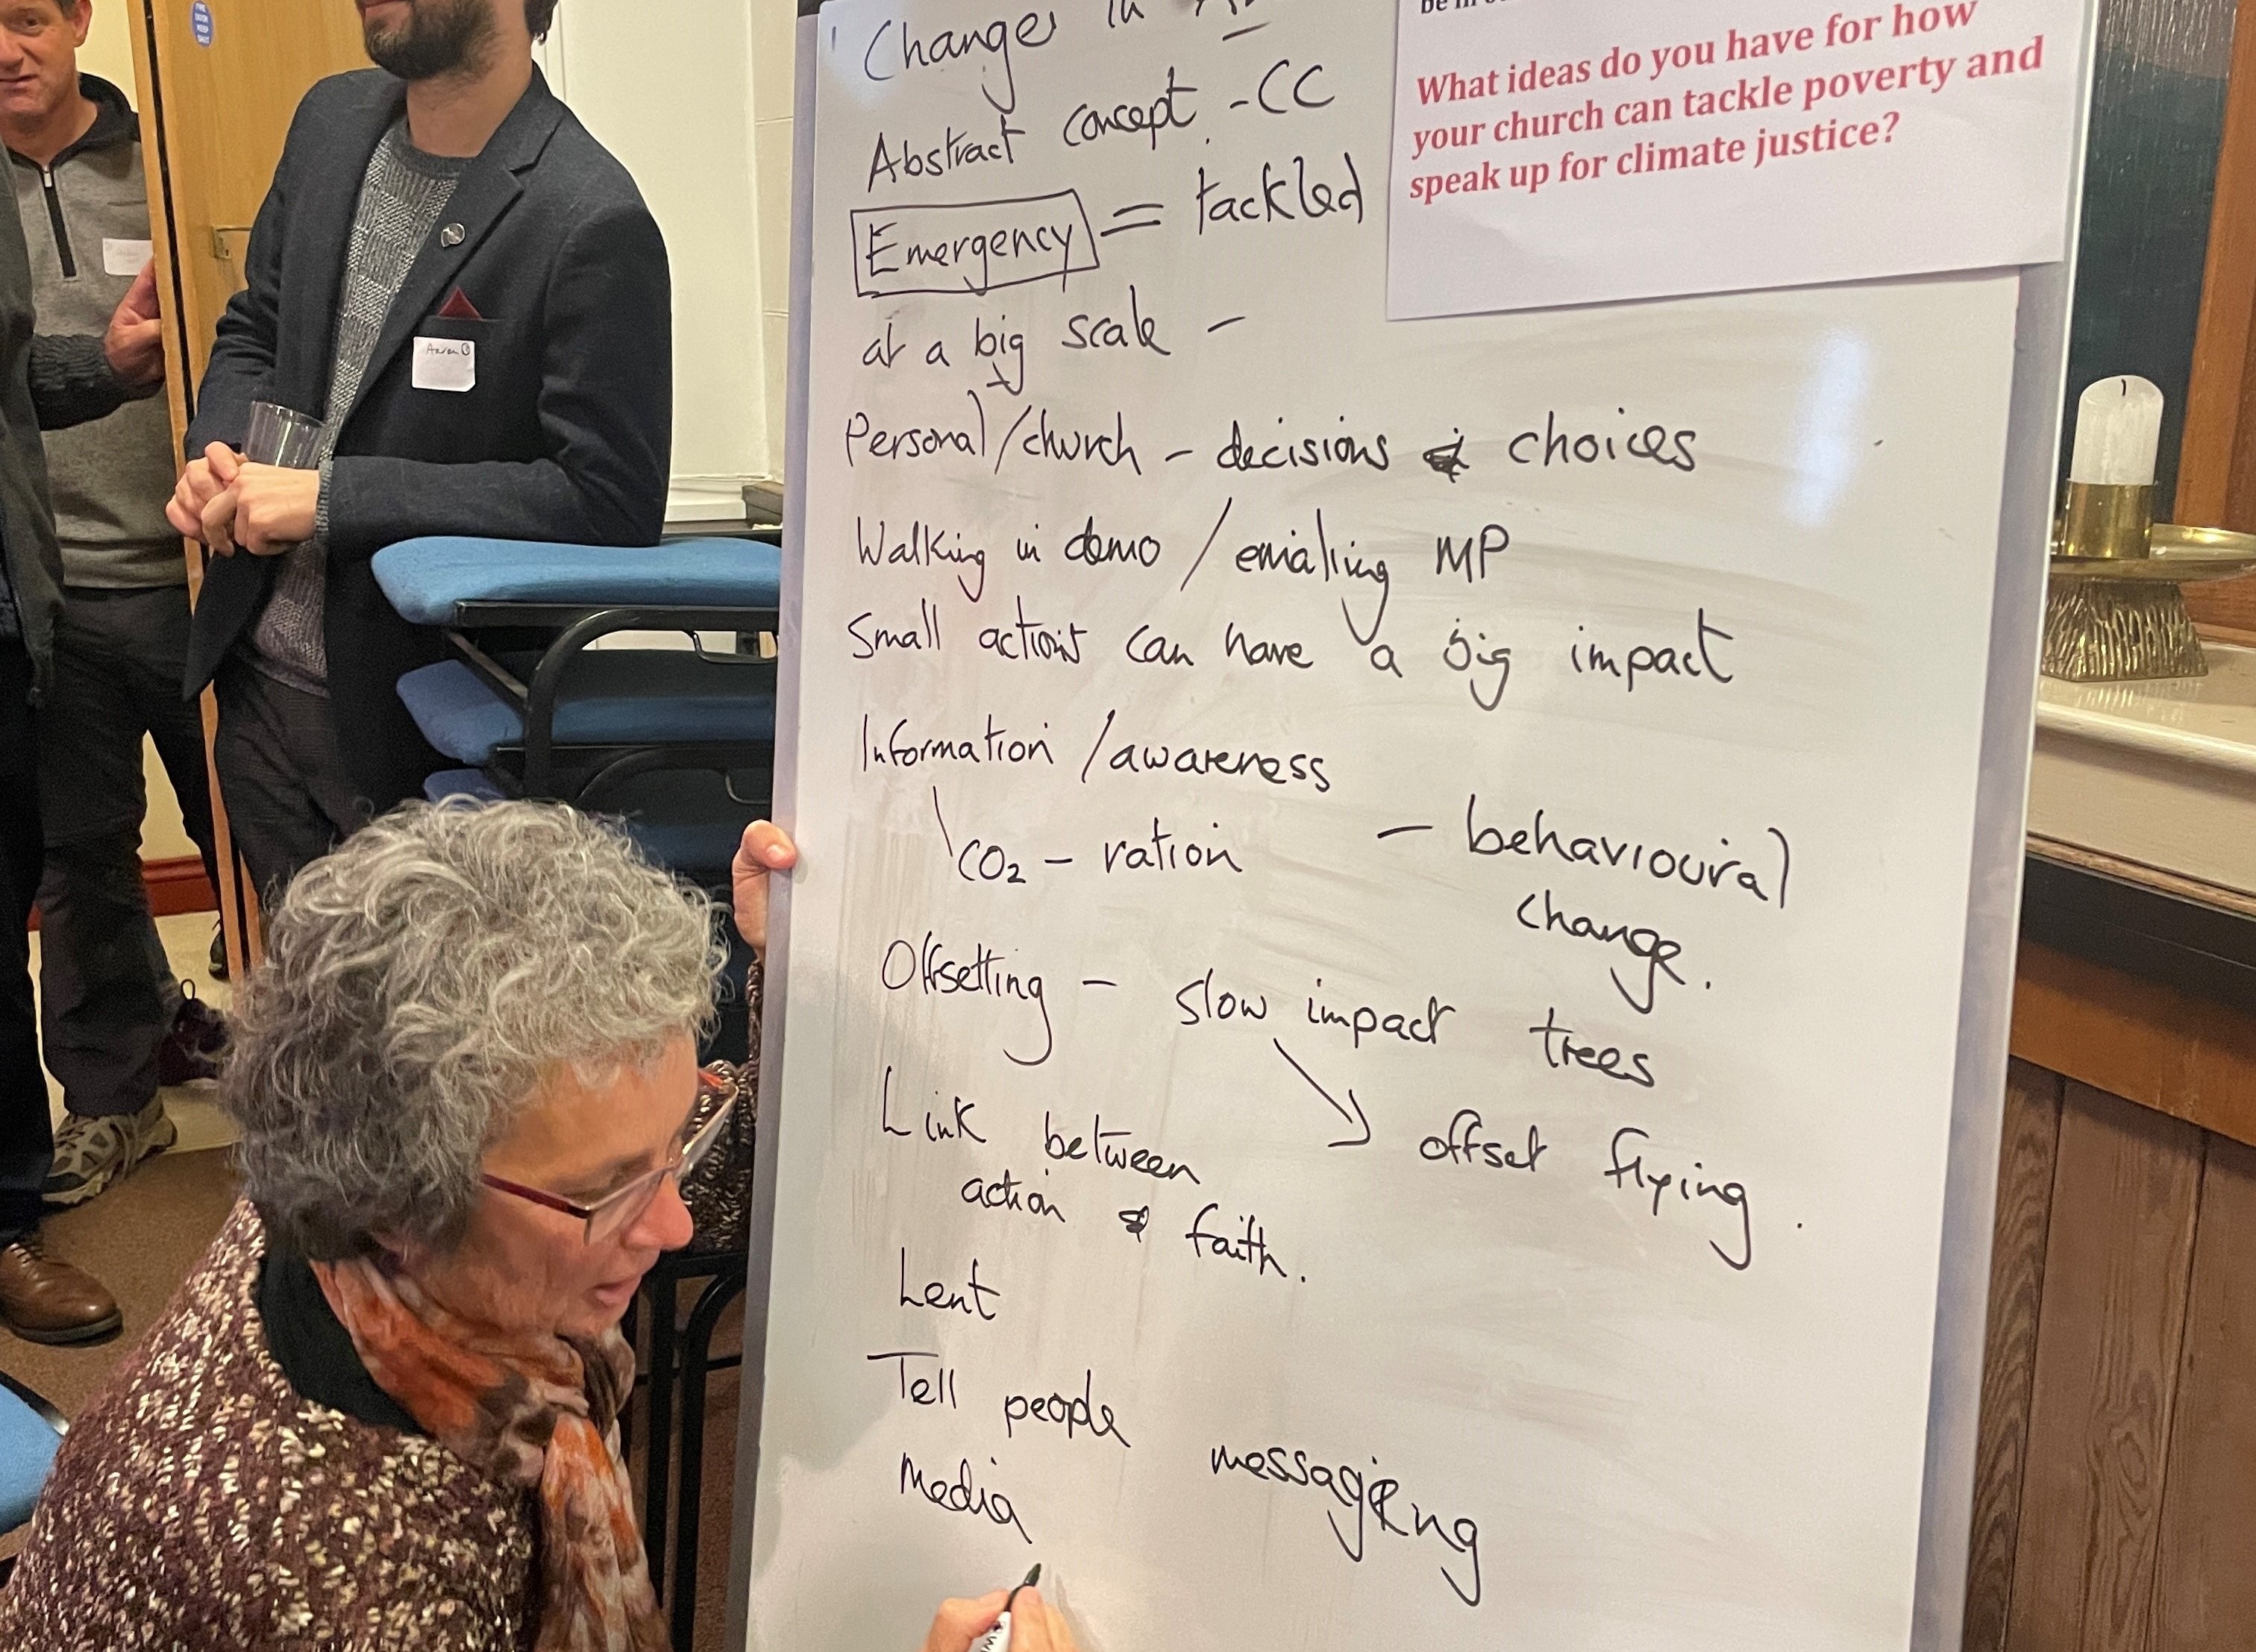 Changes in
Abstract concept - CC
Emergency = tackled
at a big scale -
Personal/church - decisions & choices
Walking in demo / emailing MP
Small actions can have a big impact
Information / awareness
CO2 - ration - behavioural
change.
Offsetting - slow impact trees
offset flying.
Link between
action & faith.
Lent
Tell people
messaging
Media
What ideas do you have for how
your church can tackle poverty and
speak up for climate justice?
FIRE
DOOR
KEEP
SHUT
Aaron